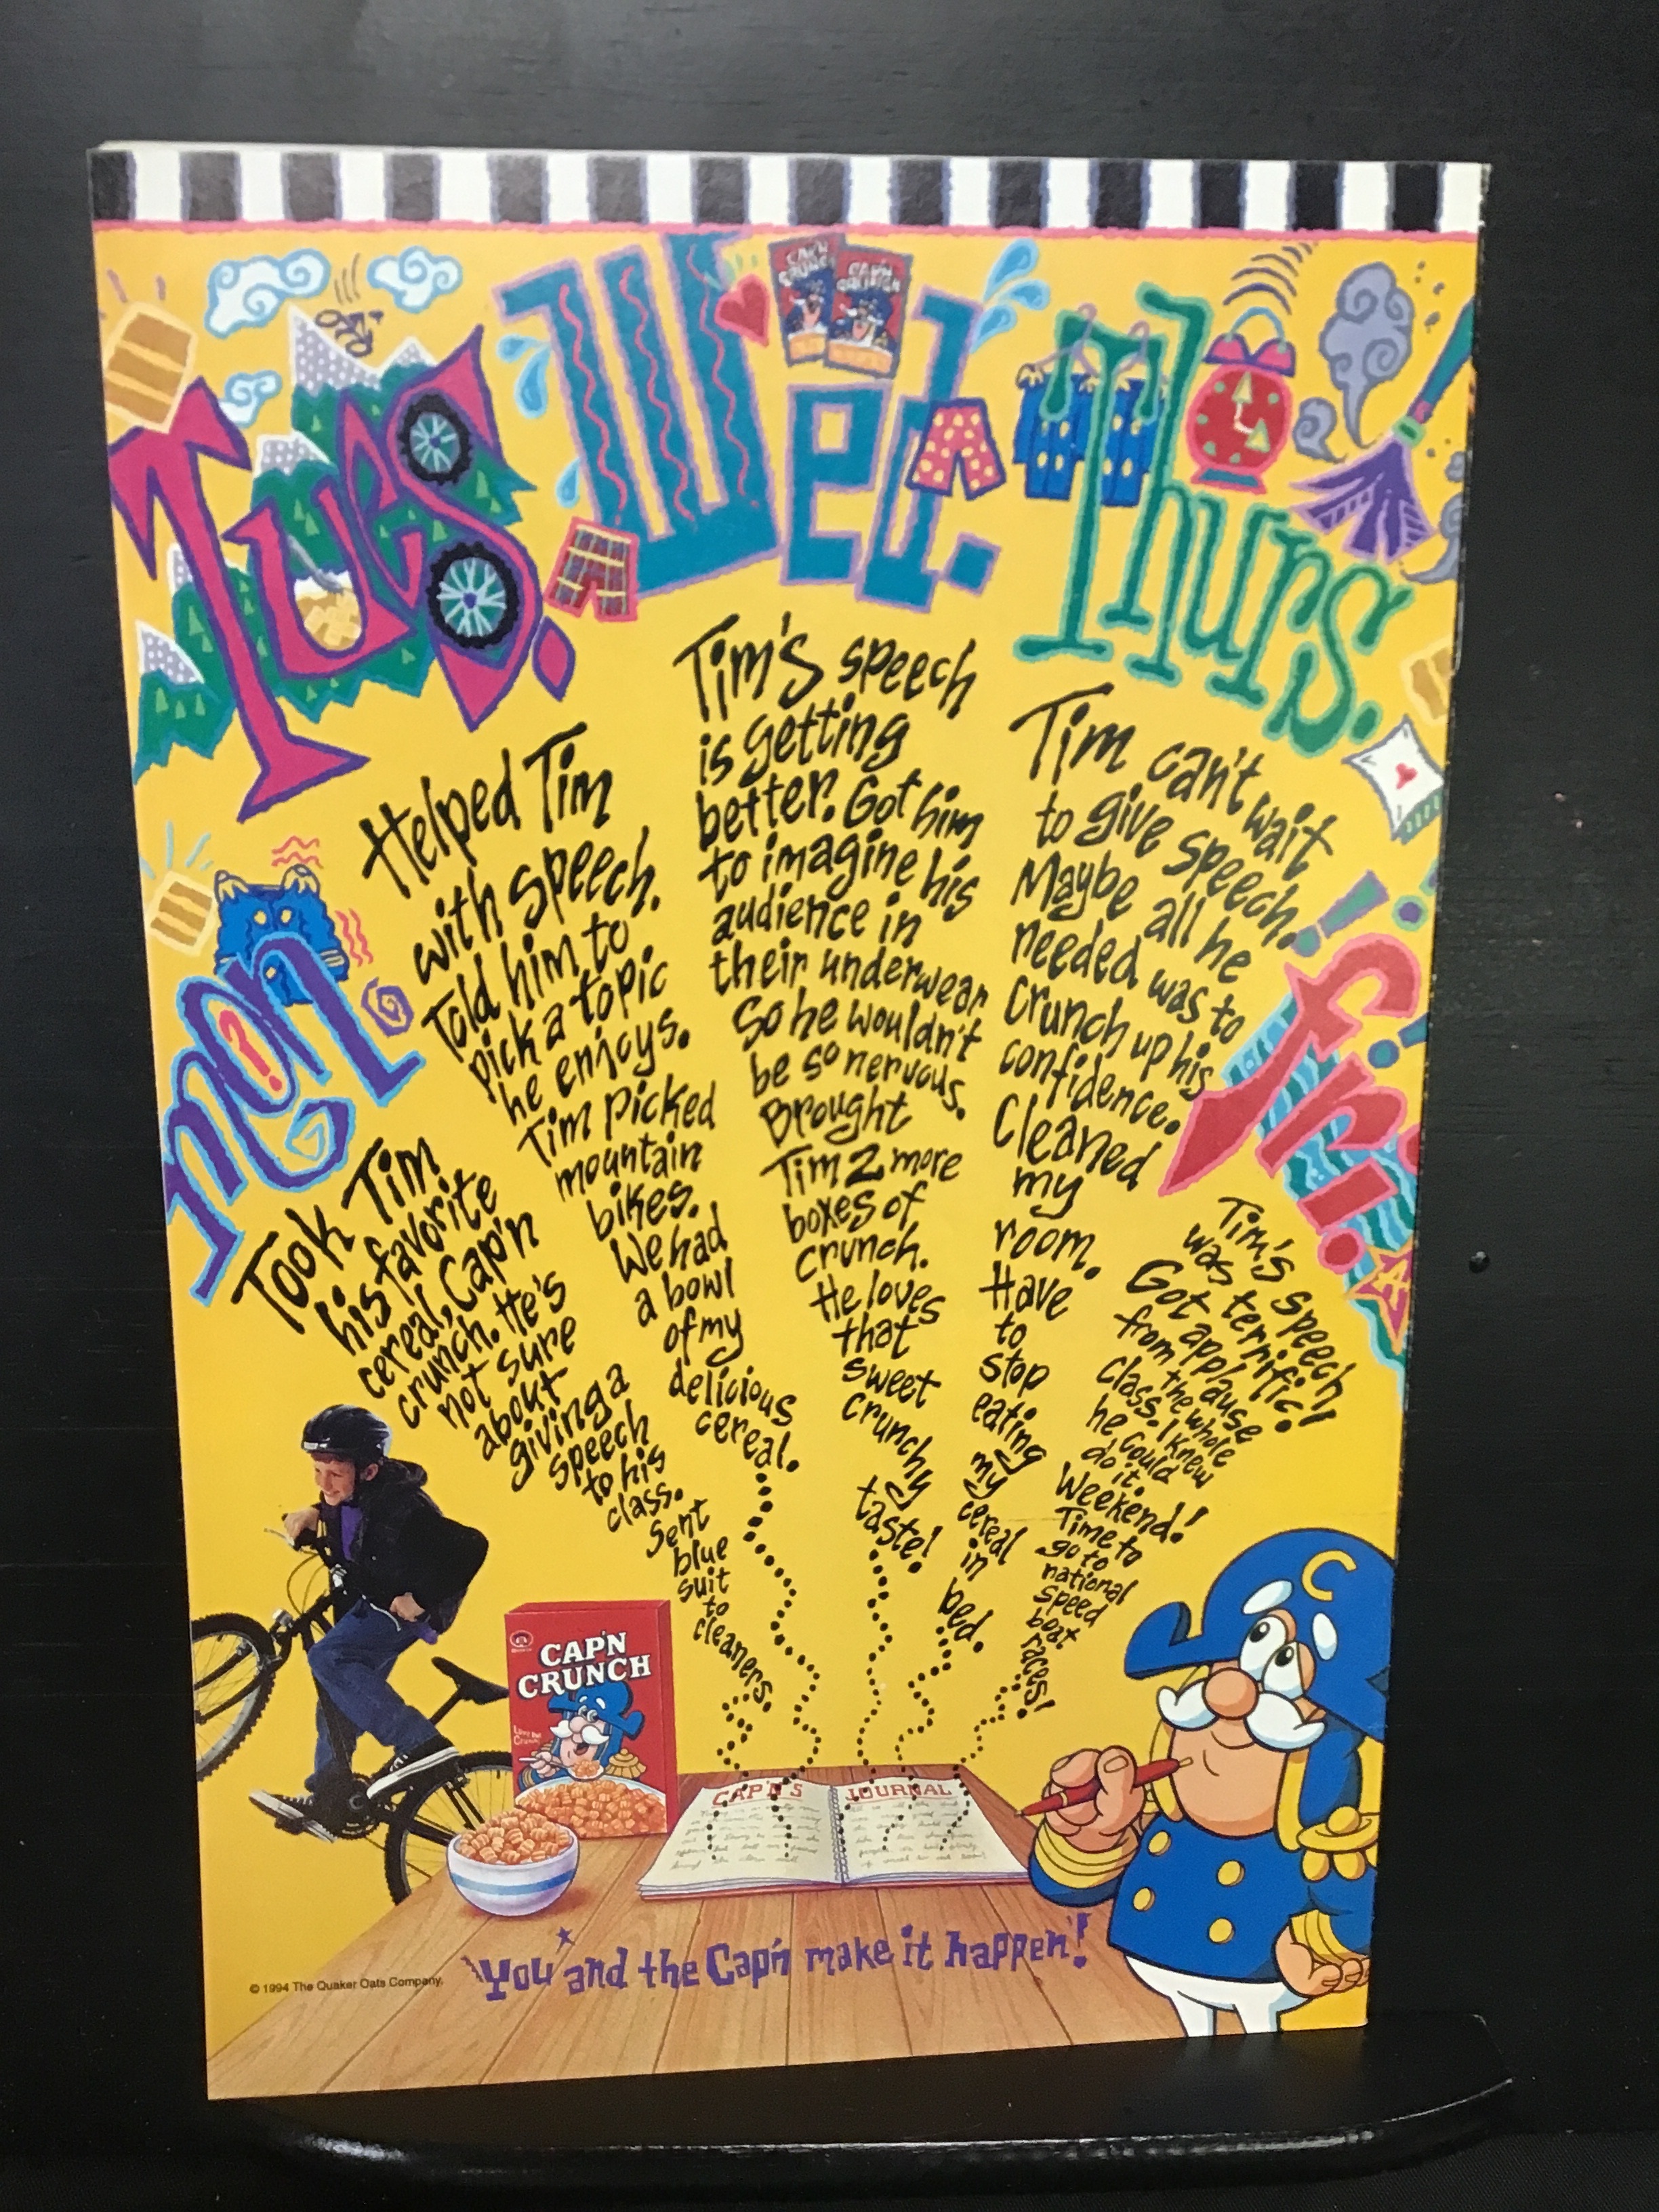 Mon
Took Tim
his favorite
cereal, Cap'n
crunch. He's
not sure
about
giving a
speech
to his
class.
Sent
blue
suit
to
cleaners.
Tues.
Helped Tim
with speech.
Told him to
pick a topic
he enjoys.
Tim picked
mountain
bikes.
We had
a bowl
of my
delicious
cereal.
Wed.
CAP'N
CRUNCH
Tim's speech
is getting
better. Got him
to imagine his
audience in
their underwear
So he wouldn't
be so nervous.
Brought
Tim 2 more
boxes of
crunch.
He loves
that
sweet
crunchy
taste!
Thurs.
Tim can't wait
to give speech.
Maybe all he
needed was to
crunch up his
confidence.
Cleaned
my
room.
Have
to
stop
eating
my
cereal
in
bed.
fri.
Tim's speech
was terrific!
Got applause
from the whole
class. I knew
he could
do it.
Weekend!
Time to
go to
national
speed
boat
races!
CAP'N
CRUNCH
CAP'N'S JOURNAL
C
You and the Cap'n make it happen!
© 1994 The Quaker Oats Company.